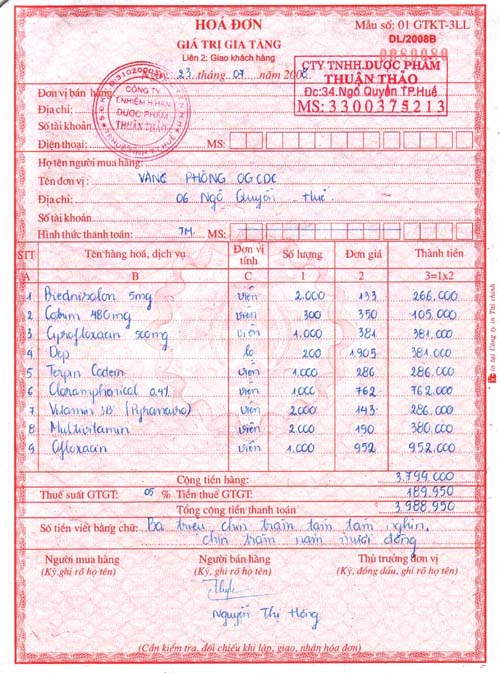 HOÁ ĐƠN
GIÁ TRỊ GIA TĂNG
Liên 2: Giao khách hàng
Mẫu số: 01 GTKT-3LL
DL/2008B
0089080
Ngày: 23 tháng 07 năm 2008
CTY TNHH.DƯỢC PHẨM
THUẬN THẢO
Đc:34.Ngô Quyền TP.Huế
MS: 3300375213
CÔNG TY
T.NHIỆM H.HẠN
DƯỢC PHẨM
THUẬN THẢO
Đơn vị bán hàng
Địa chỉ:
Số tài khoản
Điện thoại: MS:
Họ tên người mua hàng:
Tên đơn vị: VĂNG PHÒNG OGCDC
Địa chỉ: 06 Ngô Quyền Huế
Số tài khoản
Hình thức thanh toán: TM. MS:
STT Tên hàng hoá, dịch vụ Đơn vị tính Số lượng Đơn giá Thành tiền
A B C 1 2 3=1x2
1 Prednisolon 5mg viên 2.000 133 266.000
2 Cotrim 480mg viên 300 350 105.000
3 Ciprofloxacin 500mg viên 1.000 381 381.000
4 Dep lọ 200 1905 381.000
5 Terpin Codein viên 1.000 286 286.000
6 Cloramphenical 0,4% viên 1.000 762 762.000
7 Vitamin 3B viên 2.000 143 286.000
8 Multivitamin viên 2.000 190 380.000
9 Ofloxacin viên 1.000 952 952.000
Cộng tiền hàng: 3.799.000
Thuế suất GTGT: 05 % Tiền thuế GTGT: 189.950
Tổng cộng tiền thanh toán 3.988.950
Số tiền viết bằng chữ: Ba triệu, chín trăm tám tám nghìn,
chín trăm năm mươi đồng
Người mua hàng Người bán hàng Thủ trưởng đơn vị
(Ký,ghi rõ họ tên) (Ký, ghi rõ họ tên) (Ký, đóng dấu, ghi rõ họ tên)
Nguyễn Thị Hồng
(Cần kiểm tra, đối chiếu khi lập, giao, nhận hóa đơn)
in tại Công ty in Tài chính